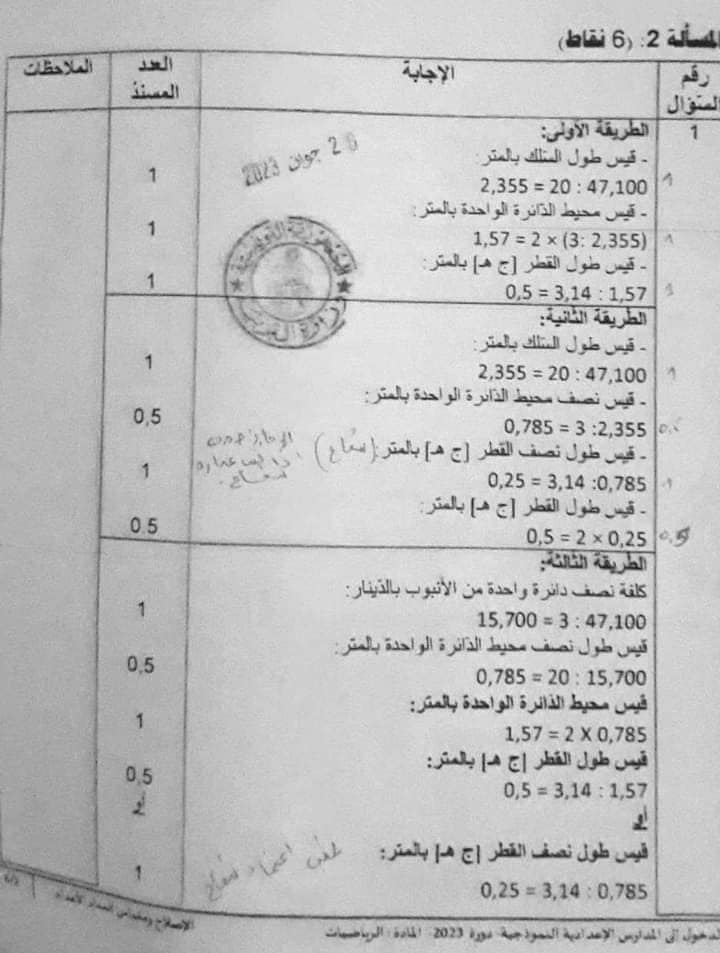 المسألة 2: (6 نقاط)
رقم السّؤال
الإجابة
العدد المسند
الملاحظات
1
الطريقة الأولى:
- قيس طول السّلك بالمتر:
1
47,100 : 20 = 2,355
1
- قيس محيط الدّائرة الواحدة بالمتر:
1
(2,355 :3) × 2 = 1,57
1
- قيس طول القطر [ج هـ] بالمتر:
1
1,57 : 3,14 = 0,5
1
26 جوان 2023
الجمهورية التونسية
وزارة التربية
الطريقة الثانية:
- قيس طول السّلك بالمتر:
1
47,100 : 20 = 2,355
1
- قيس نصف محيط الدّائرة الواحدة بالمتر:
0,5
2,355: 3 = 0,785
- قيس طول نصف القطر [ج هـ] بالمتر: (شعاع)
1
0,785: 3,14 = 0,25
1
- قيس طول القطر [ج هـ] بالمتر:
0.5
0,25 × 2 = 0,5
0,5
الطريقة الثالثة:
كلفة نصف دائرة واحدة من الأنبوب بالدّينار:
1
47,100 : 3 = 15,700
قيس طول نصف محيط الدّائرة الواحدة بالمتر:
0,5
15,700 : 20 = 0,785
قيس محيط الدّائرة الواحدة بالمتر:
1
0,785 X 2 = 1,57
قيس طول القطر [ج هـ] بالمتر:
0,5
1,57 : 3,14 = 0,5
أو
أو
قيس طول نصف القطر [ج هـ] بالمتر:
1
0,785 : 3,14 = 0,25
الدخول إلى المدارس الإعدادية النموذجية- دورة 2023- المادة: الرياضيات
الإصلاح ومقياس إسناد الأعداد